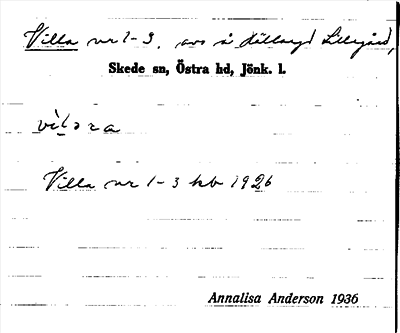 Villa nr 1-3, avs å Källeryd Lillegård,
Skede sn, Östra hd, Jönk. l.
Villa nr 1-3 kb 1926
Annalisa Anderson 1936